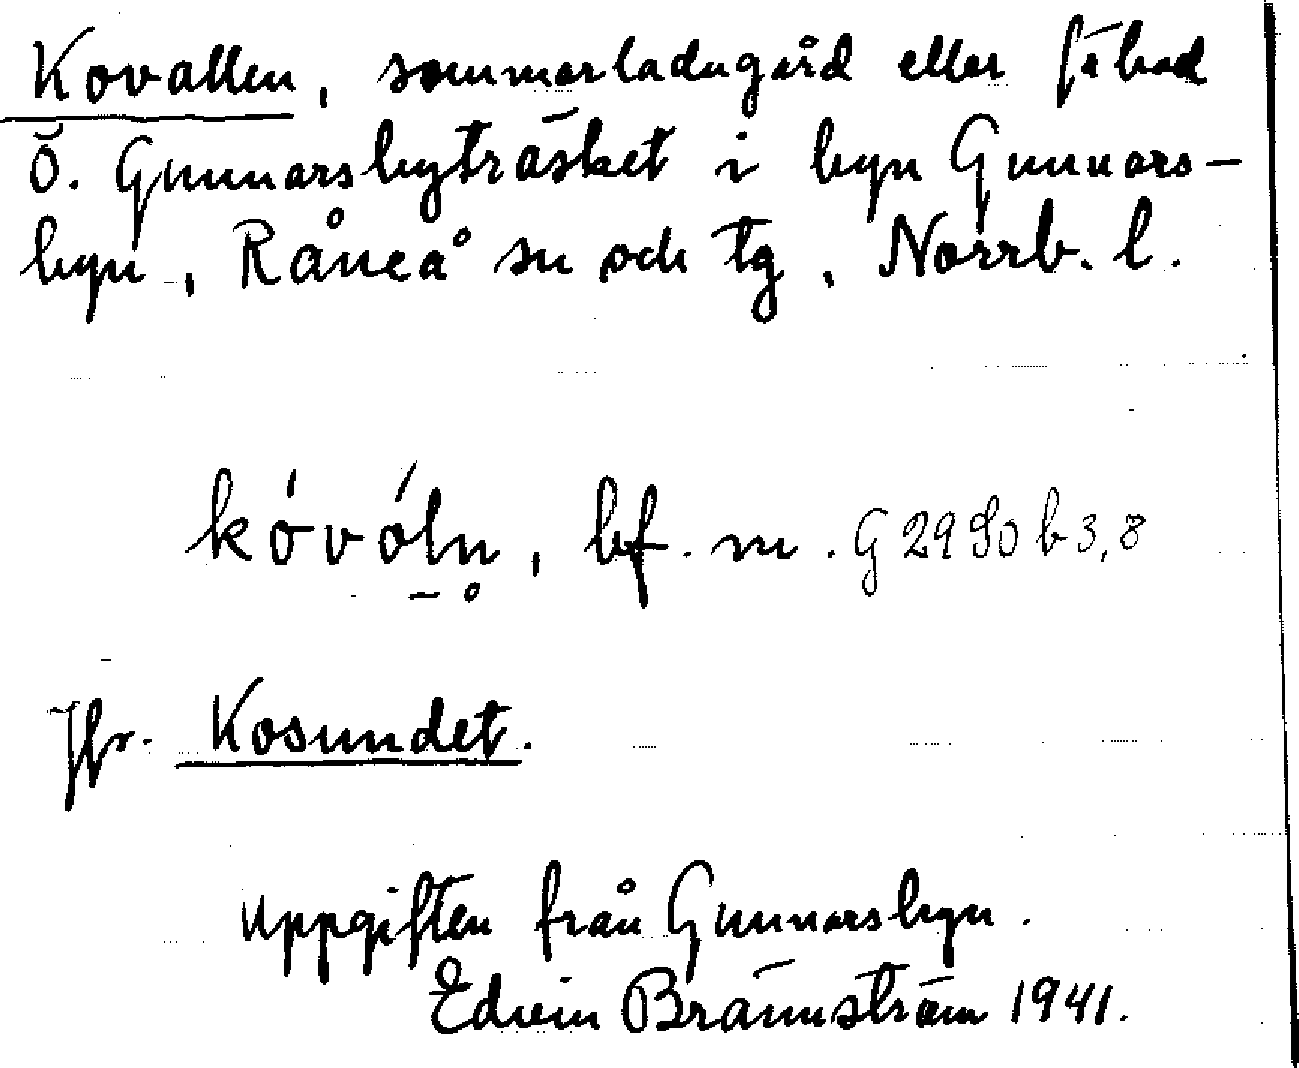 Kovallen, sommarladugård eller fäbod
Ö. Gunnarsbyträsket i byn Gunnars-
byn, Råneå sn och tg, Norrb. l.
kóvóln̥, bf. m. G 2980 b 3,8
Jfr. Kosundet.
Uppgiften från Gunnarsbyn.
Edvin Brännström 1941.